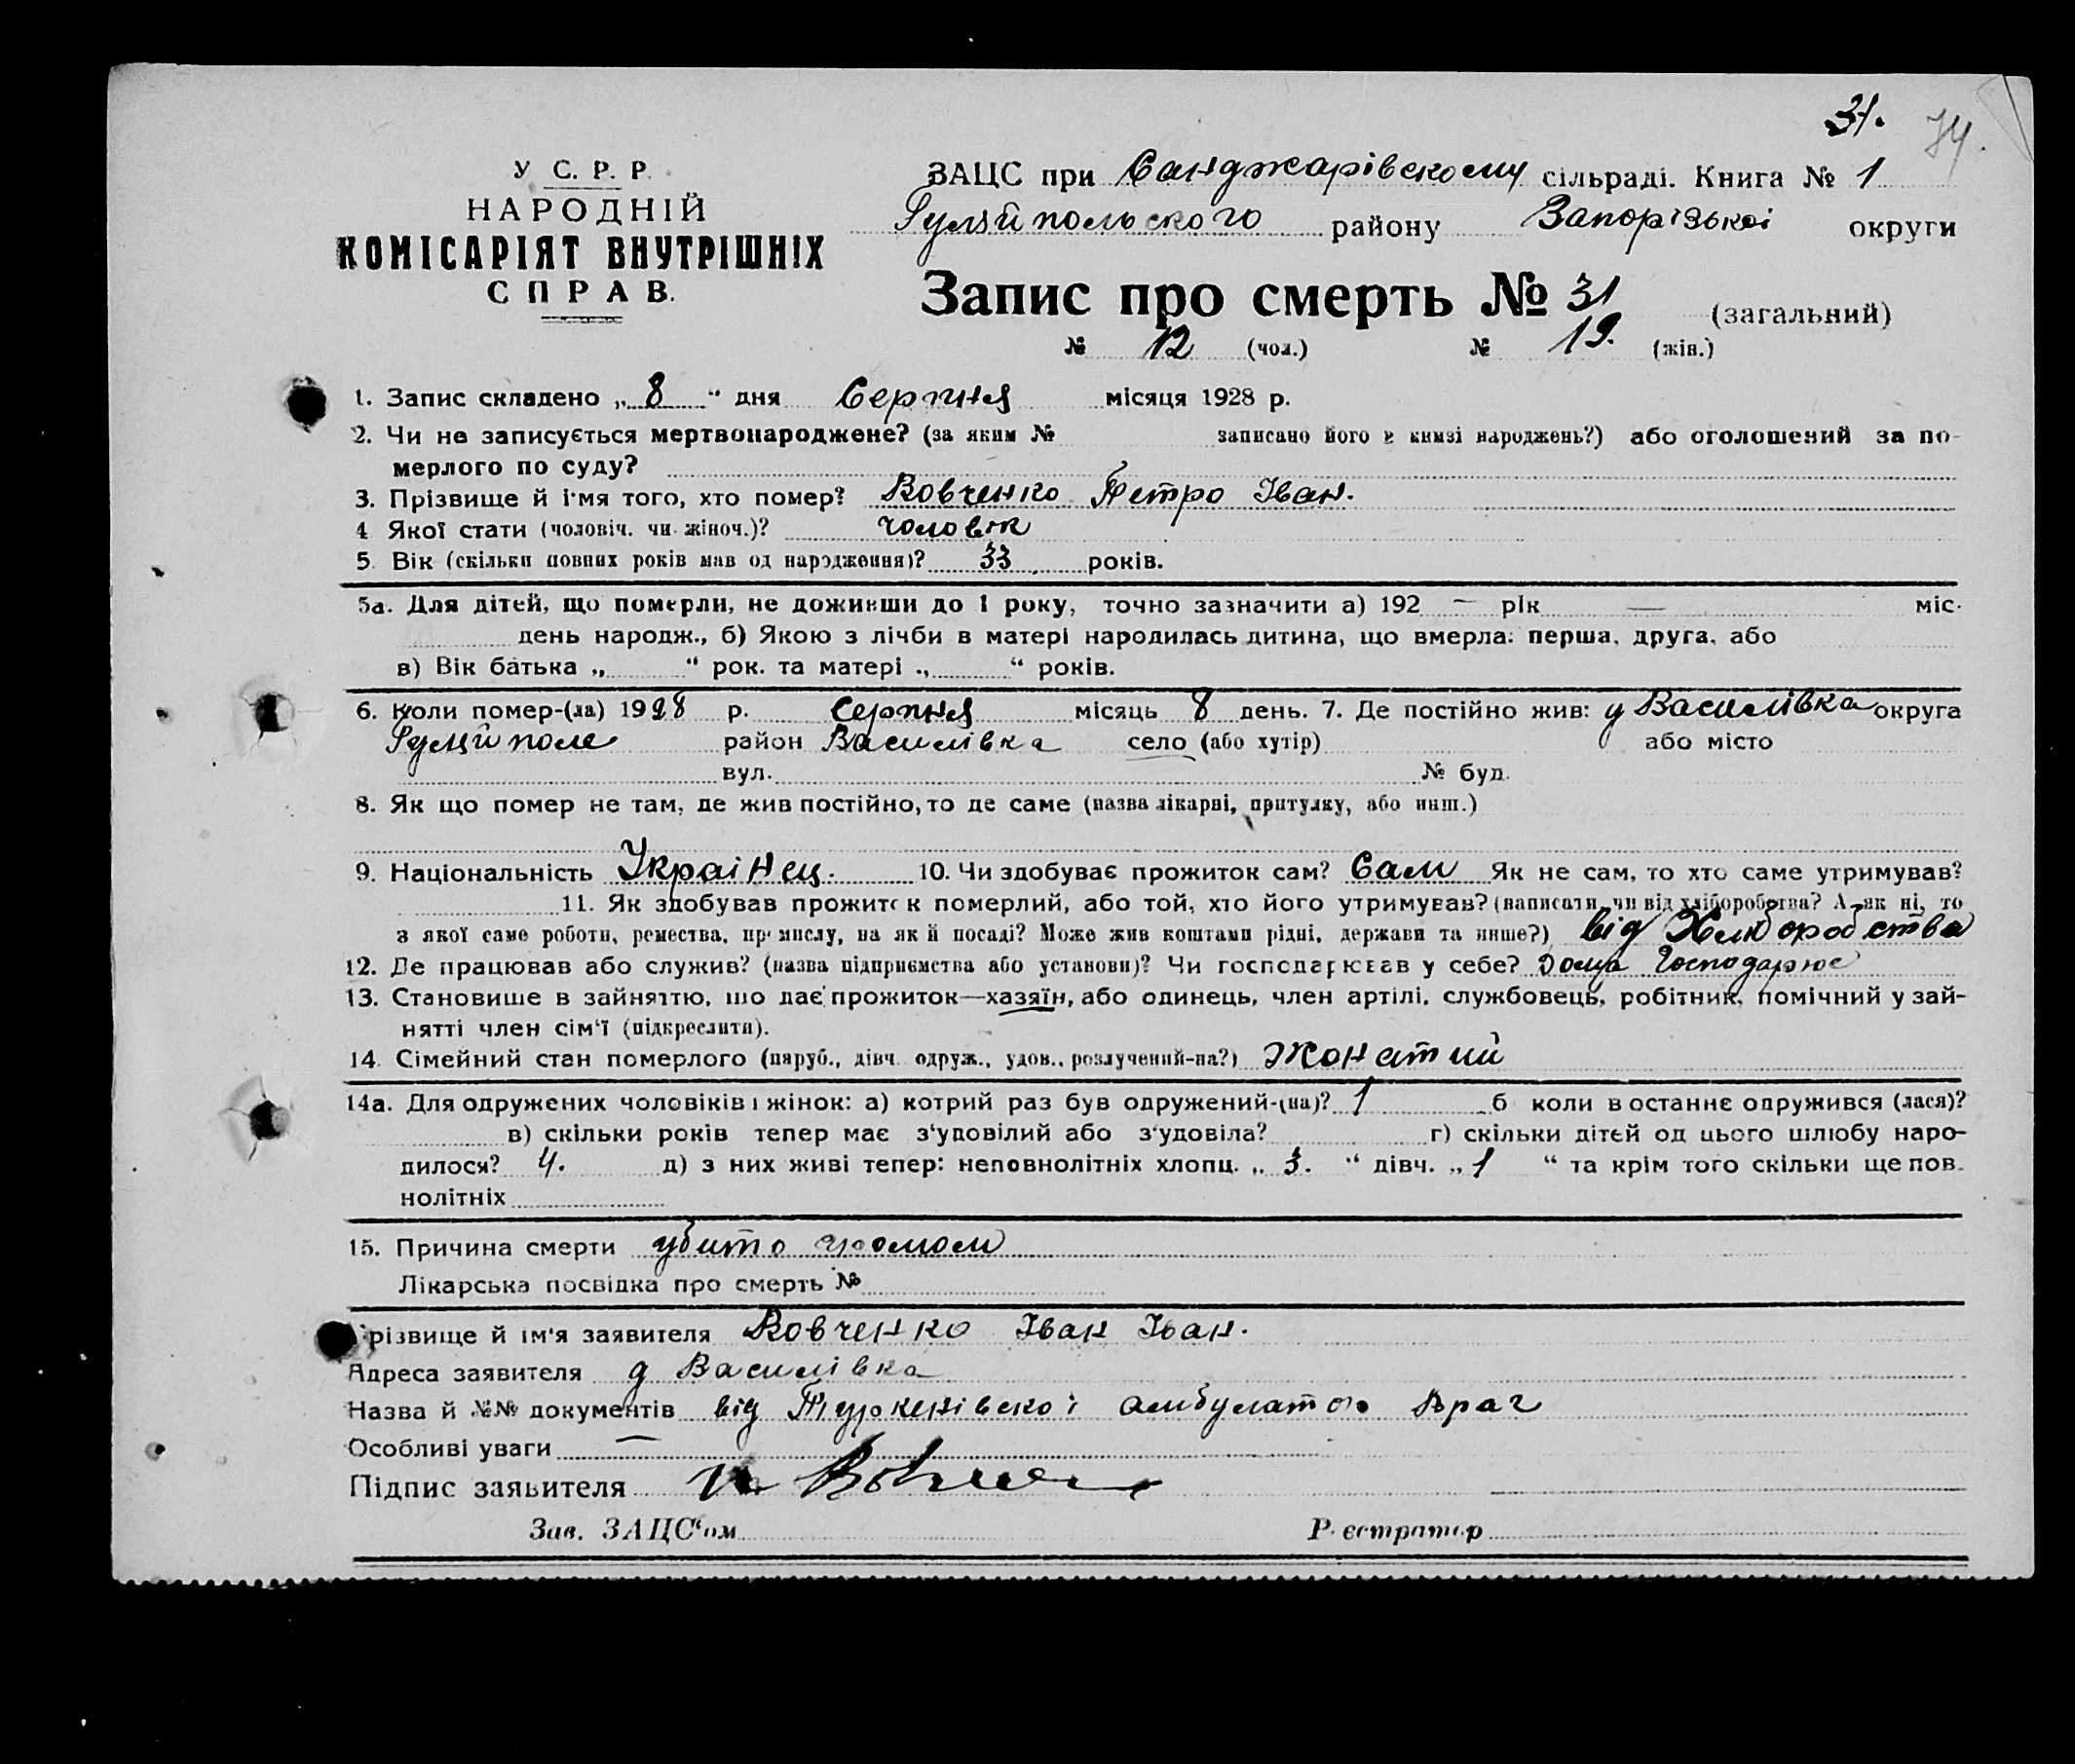 31.
74.
У С. Р. Р.
НАРОДНІЙ
КОМІСАРІЯТ ВНУТРІШНІХ
СПРАВ.
ЗАЦС при Санджарівскому сільраді. Книга № 1
Гуляйпольского району Запорізькоі округи
Запис про смерть № 31 (загальний)
№ 12 (чол.) № 19. (жін.)
1. Запис складено „ 8 “ дня Серпня місяця 1928 р.
2. Чи не записується мертвонароджене? (за яким № записано його в книзі народжень?) або оголошений за по-
мерлого по суду?
3. Прізвище й ім'я того, хто помер? Вовченко Петро Іван.
4 Якої стати (чоловіч. чи жіноч.)? чоловік
5. Вік (скільки повних років мав од народження)? 33 років.
5а. Для дітей, що померли, не доживши до 1 року, точно зазначити а) 192 — рік — міс.
день народж., б) Якою з лічби в матері народилась дитина, що вмерла: перша, друга, або
в) Вік батька „ “ рок. та матері „ “ років.
6. Коли помер-(ла) 1928 р. Серпня місяць 8 день. 7. Де постійно жив: у Василівка округа
Гуляйполе район Василівка село (або хутір) або місто
вул. № буд.
8. Як що помер не там, де жив постійно, то де саме (назва лікарні, притулку, або инш.)
9. Національність Украінец. 10. Чи здобуває прожиток сам? Сам Як не сам, то хто саме утримував?
11. Як здобував прожиток померлий, або той, хто його утримував? (написати, чи від хліборобства? А як ні, то
з якої саме роботи, ремества, промислу, на якій посаді? Може жив коштами рідні, держави та инше?) від Хліборобства
12. Де працював або служив? (назва підприємства або установи)? Чи господарював у себе? Дома Господарює
13. Становище в зайняттю, що дає прожиток—хазяїн, або одинець, член артілі, службовець, робітник, помічний у зай-
нятті член сім'ї (підкреслити).
14. Сімейний стан померлого (паруб., дівч. одруж., удов., розлучений-на?) Жонатий
14а. Для одружених чоловіків і жінок: а) котрий раз був одружений-(на)? 1 б коли в останнє одружився (лася)?
в) скільки років тепер має з'удовілий або з'удовіла? г) скільки дітей од цього шлюбу наро-
дилося? 4. д) з них живі тепер: неповнолітніх хлопц. „ 3. “ дівч. „ 1 “ та крім того скільки ще пов-
нолітніх
15. Причина смерти убито громом
Лікарська посвідка про смерть №
Прізвище й ім'я заявителя Вовченко Іван Іван.
Адреса заявителя д Василівка
Назва й №№ документів від Туркенівскоі амбулатор Врач
Особливі уваги —
Підпис заявителя
Зав. ЗАЦС'ом Реєстратор